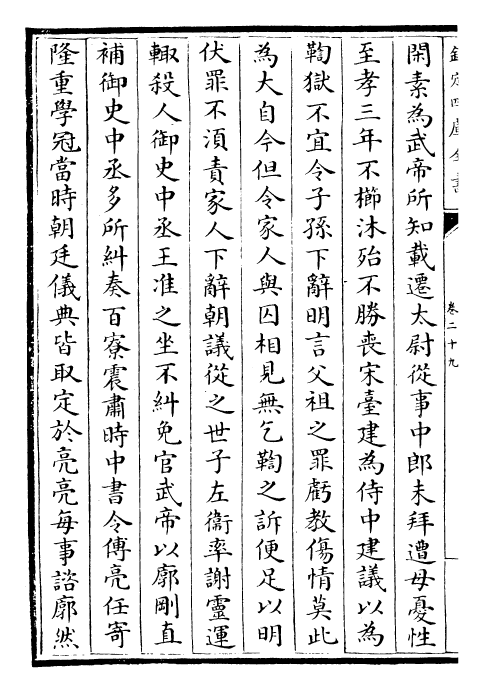 欽定四庫全書
卷二十九
閑素為武帝所知載遷太尉從事中郎未拜遭母憂性
至孝三年不櫛沐殆不勝喪宋臺建為侍中建議以為
鞫獄不宜令子孫下辭明言父祖之罪虧教傷情莫此
為大自今但令家人與囚相見無乞鞫之訴便足以明
伏罪不須責家人下辭朝議從之世子左衛率謝靈運
輒殺人御史中丞王准之坐不糾免官武帝以廓剛直
補御史中丞多所糾奏百寮震肅時中書令傅亮任寄
隆重學冠當時朝廷儀典皆取定於亮亮每事諮廓然